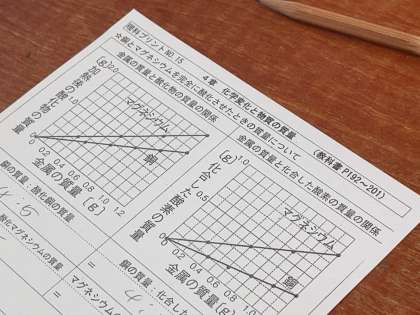 理科プリント NO. 15
4章 化学変化と物質の質量
(教科書 P192〜201)
☆銅とマグネシウムを完全に酸化させたときの質量について
金属の質量と酸化物の質量の関係
(g)
2.0
1.0
マグネシウム
銅
0
0 0.2 0.4 0.6 0.8 1.0 1.2
金属の質量 (g)
金属の質量と化合した酸素の質量の関係
(g)
1.0
化合した酸素の質量
0.5
マグネシウム
銅
0
0 0.2 0.4 0.6 0.8 1.0 1.2
金属の質量 (g)
銅の質量:酸化銅の質量
4:5
=
マグネシウムの質量
=
銅の質量:化合した
4:
マグネシウムの
=